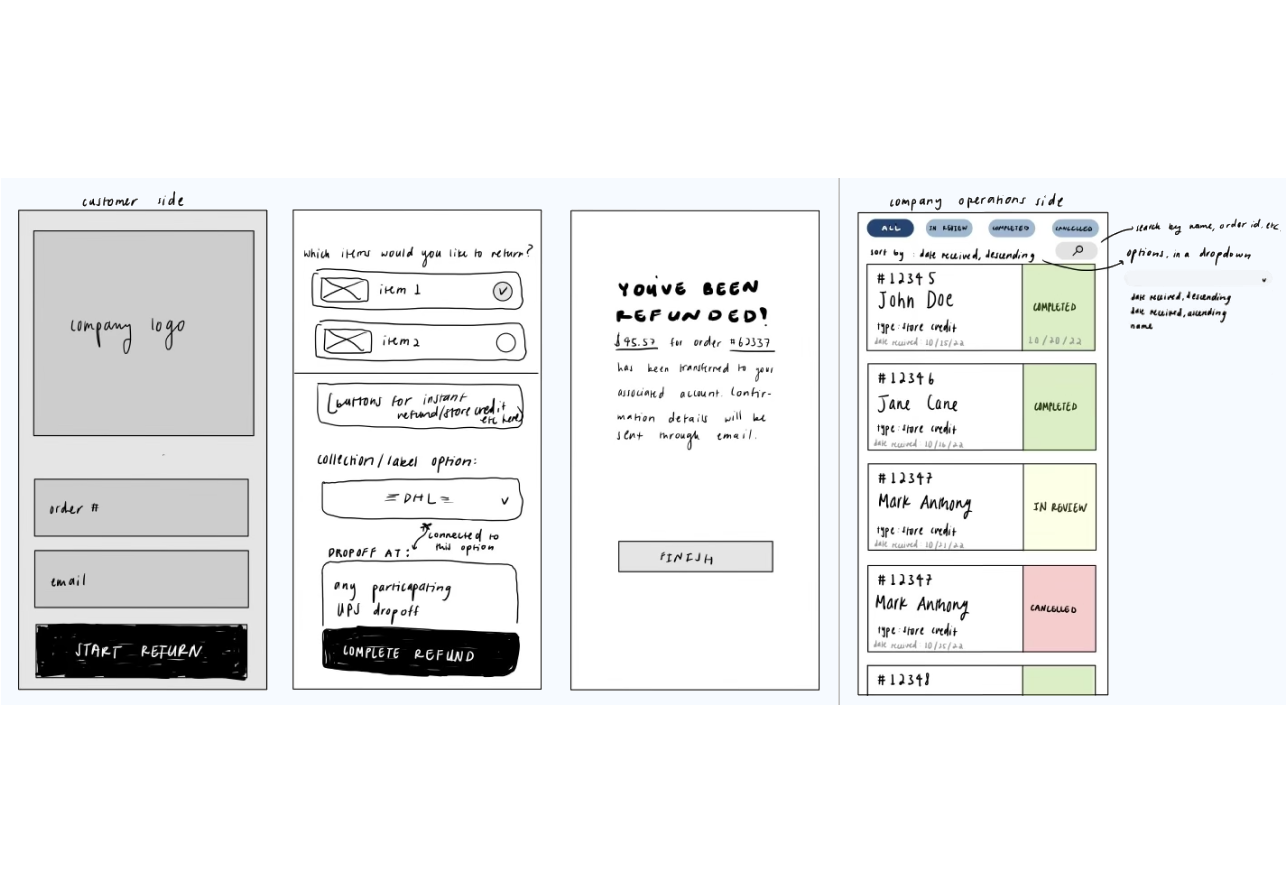 customer side
company logo
order #
email
START RETURN
which items would you like to return?
item 1
item 2
[buttons for instant
refund/store credit
etc here]
collection/label option:
DHL
connected to
this option
DROPOFF AT:
any participating
UPS dropoff
COMPLETE REFUND
YOU'VE BEEN
REFUNDED!
for order
has been transferred to your
associated account. Confir-
mation details will be
sent through email.
FINISH
company operations side
ALL
IN REVIEW
COMPLETED
CANCELLED
sort by : date received, descending
search by name, order id. etc.
options, in a dropdown
date received, descending
date received, ascending
name
#12345
John Doe
type: store credit
date received: 10/15/22
COMPLETED
10/20/22
#12346
Jane Cane
type: store credit
date received: 10/16/22
COMPLETED
#12347
Mark Anthony
type: store credit
date received: 10/21/22
IN REVIEW
#12347
Mark Anthony
type: store credit
date received: 10/15/22
CANCELLED
#12348